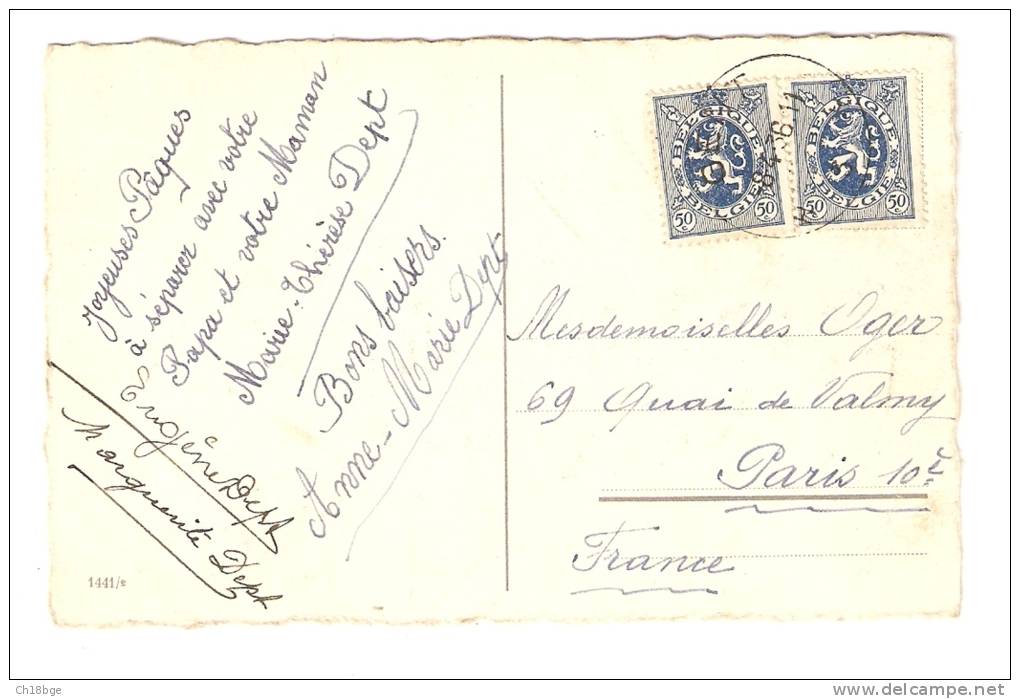 Joyeuses Pâques
à séparer avec votre
Papa et votre Maman
Marie-Thérèse Dept
Bons baisers.
Anne-Marie Dept
Eugène Dept
Marguerite Dept
1441/
BELGIQUE
BELGIE
50
c
50
BELGIQUE
BELGIE
50
50
Mesdemoiselles Oger
69 Quai de Valmy
Paris 10e
France
Ch18bge
delcampe.net